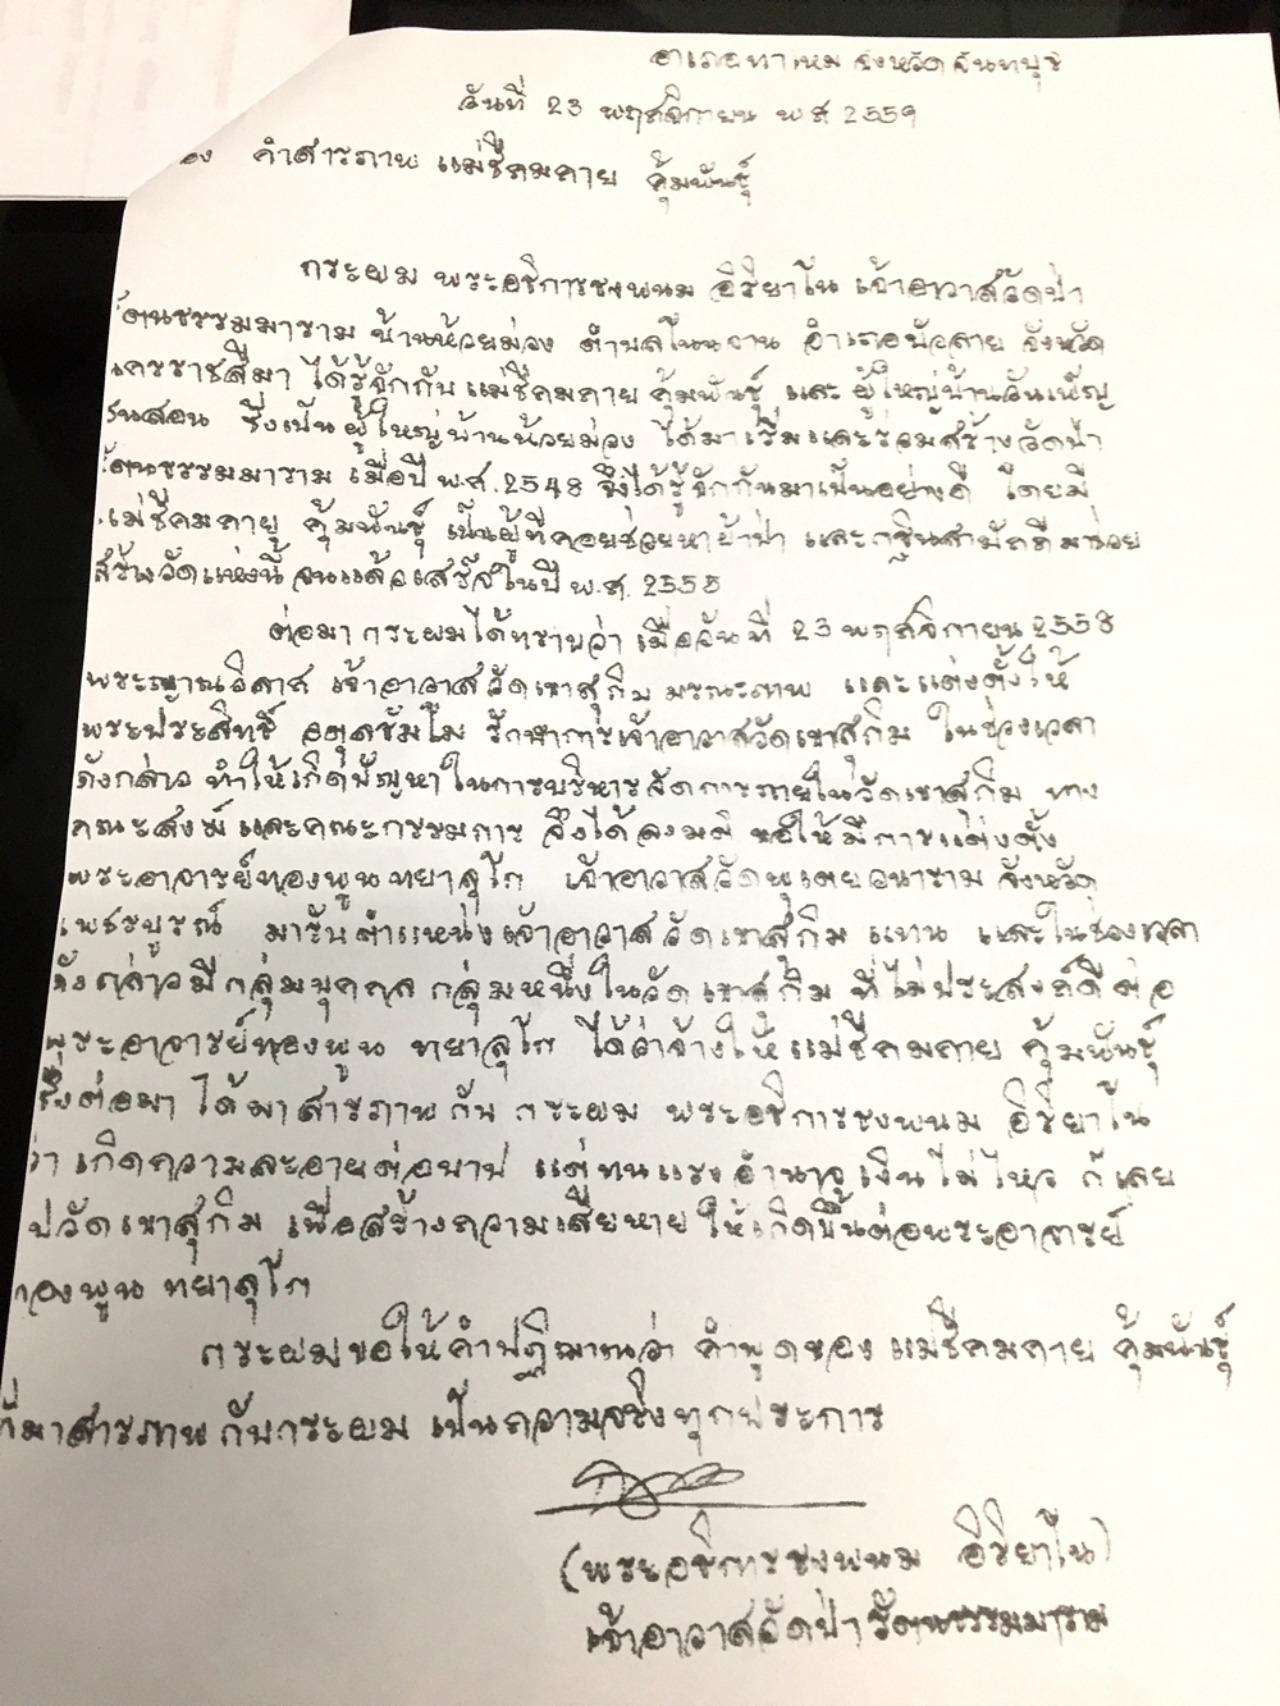 อำเภอท่าใหม่ จังหวัดจันทบุรี
วันที่ 23 พฤศจิกายน พ.ศ 2559
อง คำสารภาพ แม่ชีคมคาย คุ้มพันธุ์
กระผม พระอธิการชงพนม อิริยาโน เจ้าอาวาสวัดป่า
รัตนธรรมมาราม บ้านห้วยม่วง ตำบลโนนจาน อำเภอบัวลาย จังหวัด
นครราชสีมา ได้รู้จักกับ แม่ชีคมคาย คุ้มพันธุ์ และ ผู้ใหญ่บ้านวันเพ็ญ
รนสอน ซึ่งเป็น ผู้ใหญ่บ้านห้วยม่วง ได้มาเริ่มและร่วมสร้างวัดป่า
รัตนธรรมมาราม เมื่อปี พ.ศ. 2548 จึงได้รู้จักกันมาเป็นอย่างดี โดยมี
แม่ชีคมคาย คุ้มพันธุ์ เป็นผู้ที่คอยช่วยหาผ้าป่า และกฐินสามัคคีมาช่วย
สร้างวัดแห่งนี้ จนแล้วเสร็จในปี พ.ศ. 2555
ต่อมา กระผมได้ทราบว่า เมื่อวันที่ 23 พฤศจิกายน 2558
พระญาณวิลาศ เจ้าอาวาสวัดเขาสุกิม มรณะภาพ และแต่งตั้งให้
พระประสิทธิ์ รักษาการเจ้าอาวาสวัดเขาสุกิม ในช่วงเวลา
ดังกล่าว ทำให้เกิดปัญหาในการบริหารจัดการภายในวัดเขาสุกิม ทาง
คณะสงฆ์และคณะกรรมการ จึงได้ลงมติ ขอให้มีการแต่งตั้ง
พระอาจารย์ทองพูน ทยาลุโก เจ้าอาวาสวัดพุเตยวนาราม จังหวัด
เพชรบูรณ์ มารับตำแหน่งเจ้าอาวาสวัดเขาสุกิม แทน และในช่วงเวลา
ดังกล่าวมีกลุ่มบุคคล กลุ่มหนึ่งในวัดเขาสุกิม ที่ไม่ประสงค์ดีต่อ
พระอาจารย์ทองพูน ทยาลุโก ได้ว่าจ้างให้ แม่ชีคมคาย คุ้มพันธุ์
ซึ่งต่อมา ได้มาสารภาพกับ กระผม พระอธิการชงพนม อิริยาโน
ว่า เกิดความละอายต่อบาป แต่ทนแรงอำนาจเงินไม่ไหว ก็เลย
ปวัดเขาสุกิม เพื่อสร้างความเสียหาย ให้เกิดขึ้นต่อพระอาจารย์
ทองพูน ทยาลุโก
กระผมขอให้คำปฏิญาณว่า คำพูดของ แม่ชีคมคาย คุ้มพันธุ์
ที่มาสารภาพกับกระผม เป็นความจริงทุกประการ
(พระอธิการชงพนม อิริยาโน)
เจ้าอาวาสวัดป่ารัตนธรรมมาราม